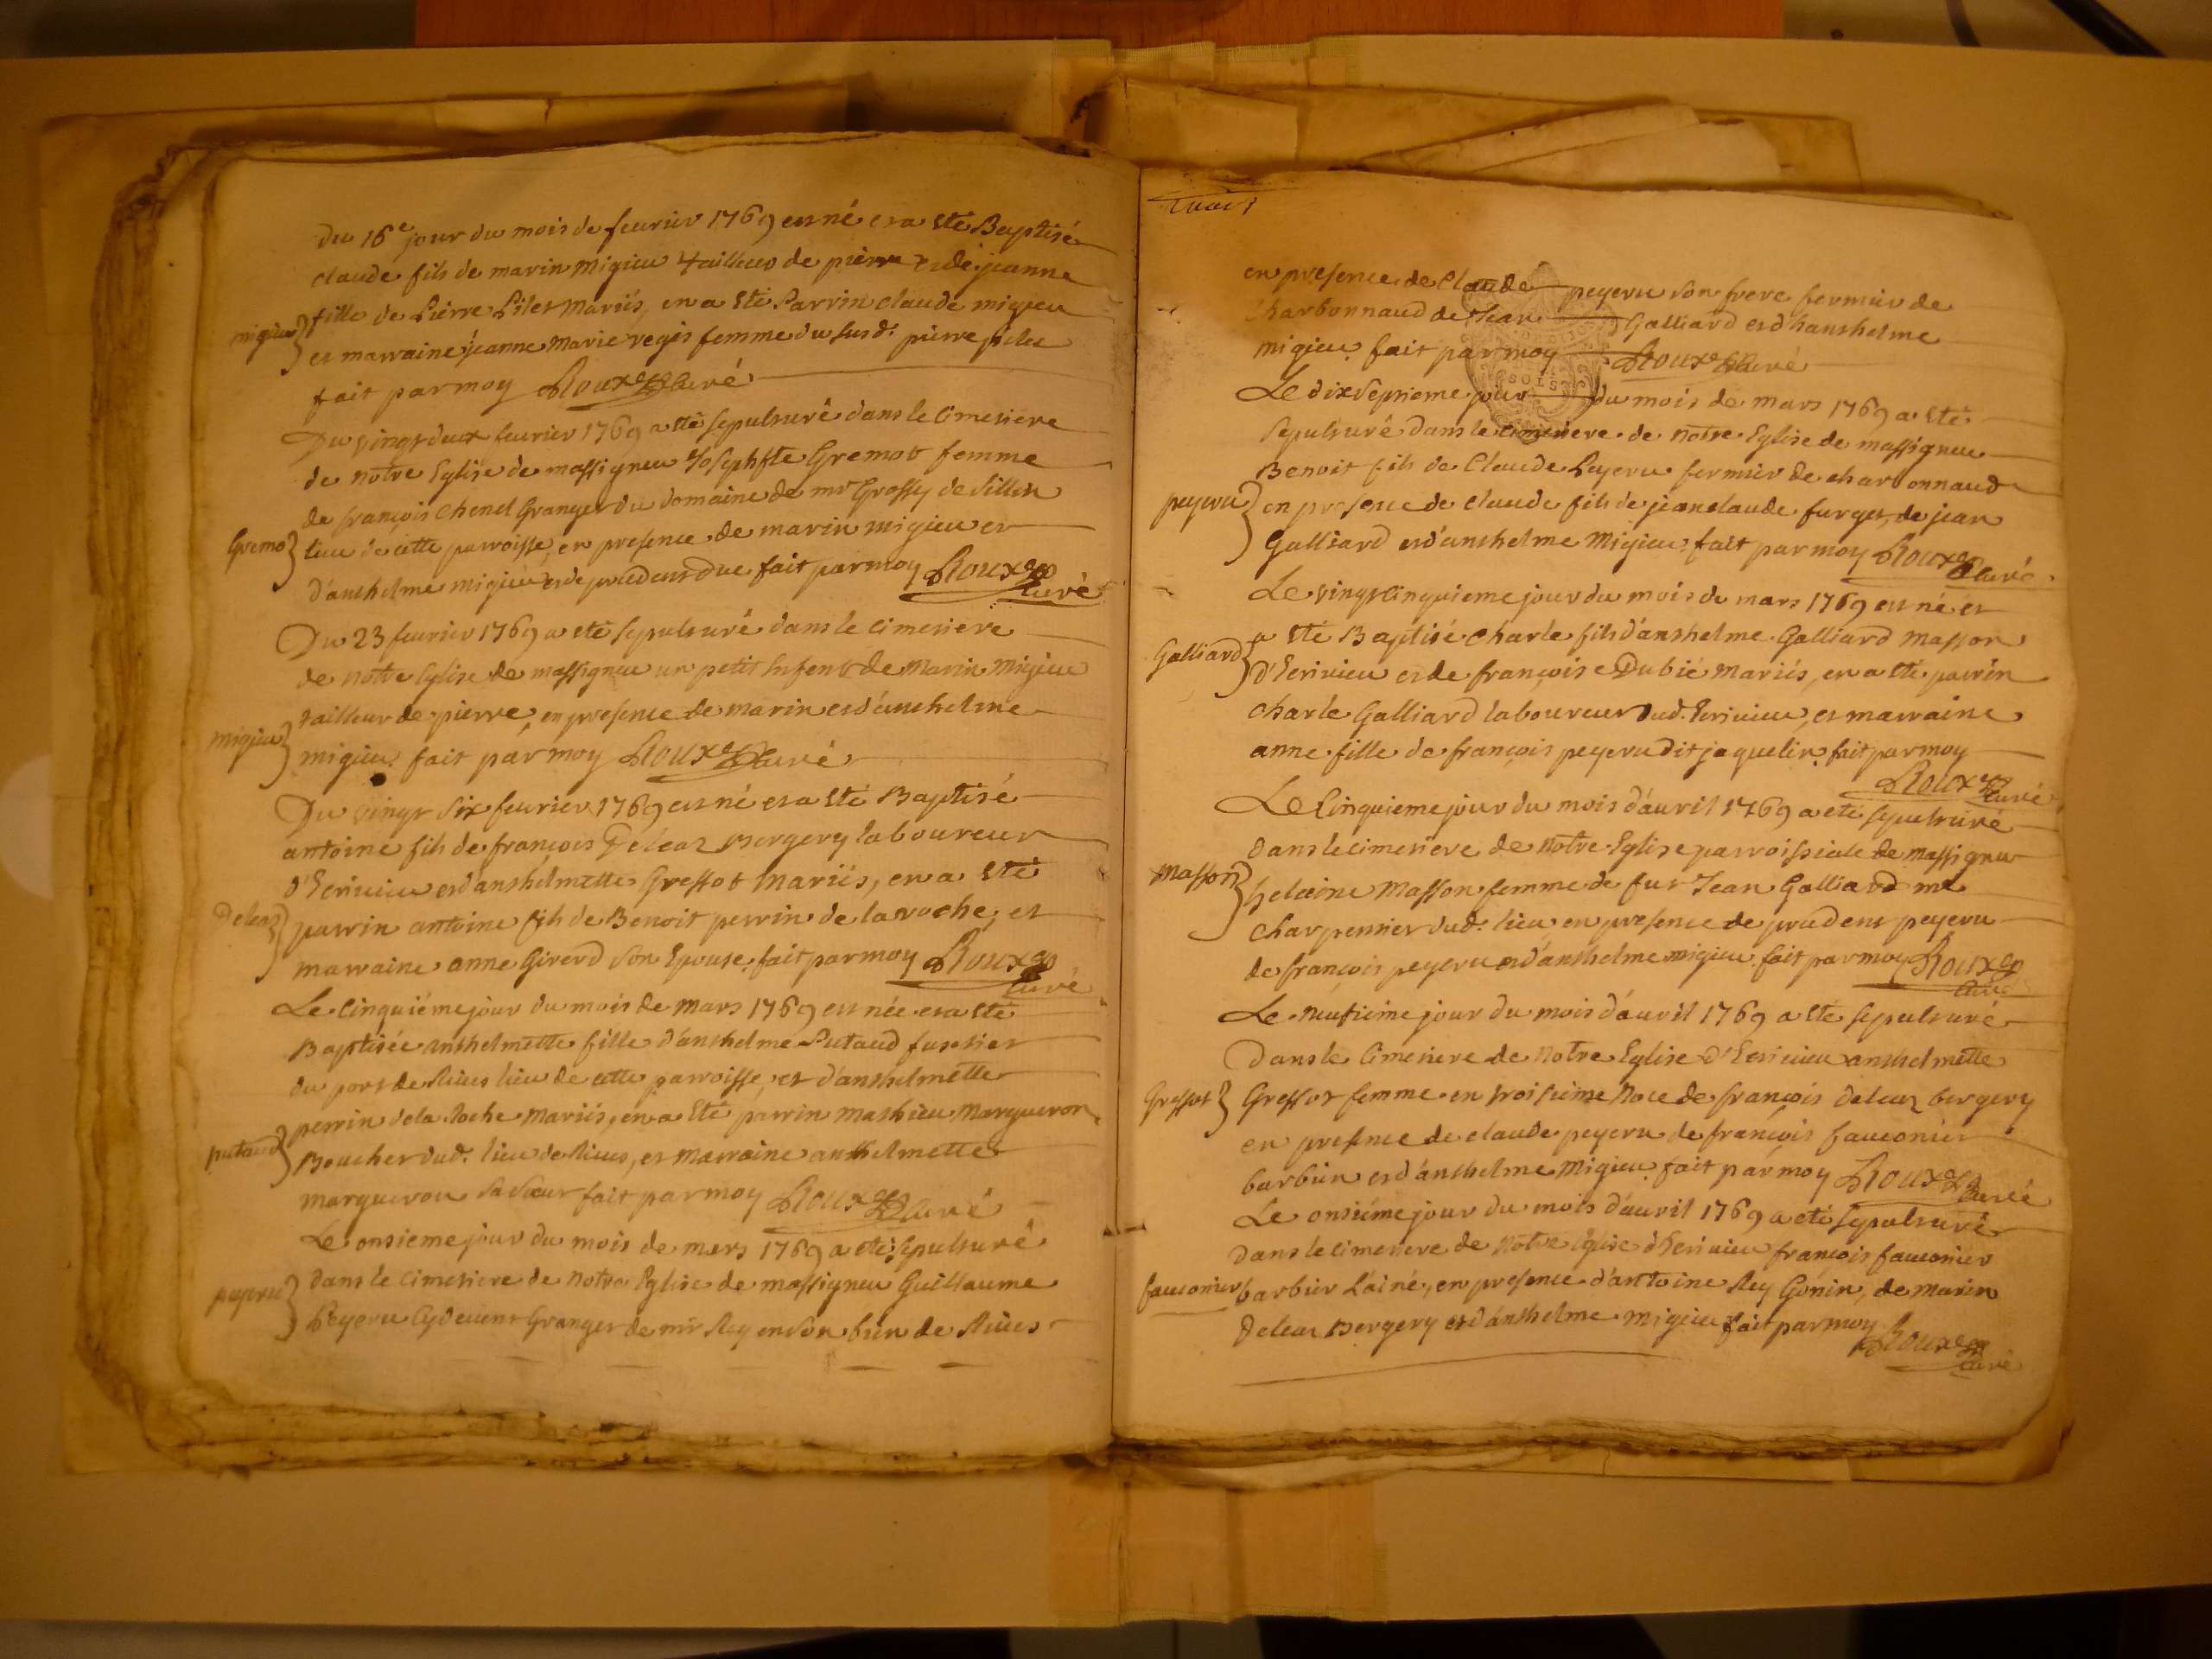 Du 16e jour du mois de feurier 1769 est né et a sté Baptisé
claude fils de marin migieu tailleur de pierre et de jeanne
fille de Pierre Pilet Mariés, en a sté Parrin claude migieu
migieu
et marraine jeanne Marie regis femme du susd. pierre pilet
fait par moy Roux Curé
Du vingt deux feurier 1769 a sté sepulturé dans le cimetiere
de notre Eglise de massigneu Josephfte Gremot femme
de françois Chenel Granger du Domaine de mr Grossy de Sillin
Gremo
lieu de cette parroisse, en presence de marin migieu et
d'anthelme migieu et de prudent Due fait par moy Roux
curé
Du 23 feurier 1769 a eté sepulturé dans le cimetiere
de notre Eglise de massigneu un petit Enfent de Marin Migieu
tailleur de pierre, en presence de marin et d'anthelme
migieu
migieu fait par moy Roux Curé
Du vingt six feurier 1769 est né et a sté Baptisé
antoine fils de françois Deleaz Bergery laboureur
d'Eriuieu et d'anthelmette Gressot Mariés, en a sté
Deleaz
parrin antoine fils de Benoit perrin de la roche, et
marraine anne Girerd son Epouse fait par moy Roux
Curé
Le cinquiéme jour du mois de Mars 1769 est née et a sté
Baptisée anthelmette fille d'anthelme Putaud
du port de Riues lieu de cette parroisse, et d'anthelmette
perrin de la Roche Mariés, en a sté parrin Mathieu Margueron
putaud
Boucher dud. lieu de Riues, et Marraine anthelmette
margueron sa sœur fait par moy Roux Curé
Le onsieme jour du mois de mars 1769 a eté sepulturé
dans le cimetiere de notre Eglise de massigneu Guillaume
peyeru
Peyeru Cydeuent Granger de mr Rey en son bien de Riues
en presence de Claude peyeru son frere fermier de
Charbonnaud de Jean Galliard et d'hanthelme
migieu fait par moy Roux Curé
Le dix septieme jour du mois de mars 1769 a sté
sepulturé dans le cimetiere de notre Eglise de massigneu
Benoit fils de Claude Peyeru fermier de charbonnaud
peyeru
en presence de claude fils de jeanclaude furget, de jean
Galliard et d'anthelme Migieu fait par moy Roux
Curé
Le vingt cinquieme jour du mois de mars 1769 est né et
a sté Baptisé Charle fils d'anthelme Galliard Masson
Galliard
d'Eriuieu et de françoise Dubié Mariés, en a sté parrin
charle Galliard laboureur dud. Eriuieu, et marraine
anne fille de françois peyeru dit jaquelin fait par moy
Roux Curé
Le Cinquieme jour du mois d'auril 1769 a eté sepulturé
dans le cimetiere de notre Eglise parroissiale de Massigneu
Masson
helaine Masson femme de fut Jean Galliard me
charpentier dud. lieu, en presence de prudent peyeru
de françois peyeru et d'anthelme migieu fait par moy Roux
Curé
Le neufuieme jour du mois d'auril 1769 a sté sepulturé
dans le Cimetiere de Notre Eglise d'Eriuieu anthelmette
Gressot
Gressot femme en troisieme Noce de françois deleaz bergery
en presence de claude peyeru de françois fauconier
barbier et d'anthelme Migieu fait par moy Roux
Curé
Le onsiéme jour du mois d'auril 1769 a eté sepulturé
dans le cimetiere de Notre Eglise d'Eriuieu françois fauconier
fauconier
barbier L'ainé, en presence d'antoine Rey Gonin, de marin
deleaz Bergery et d'anthelme migieu fait par moy
Roux
Curé